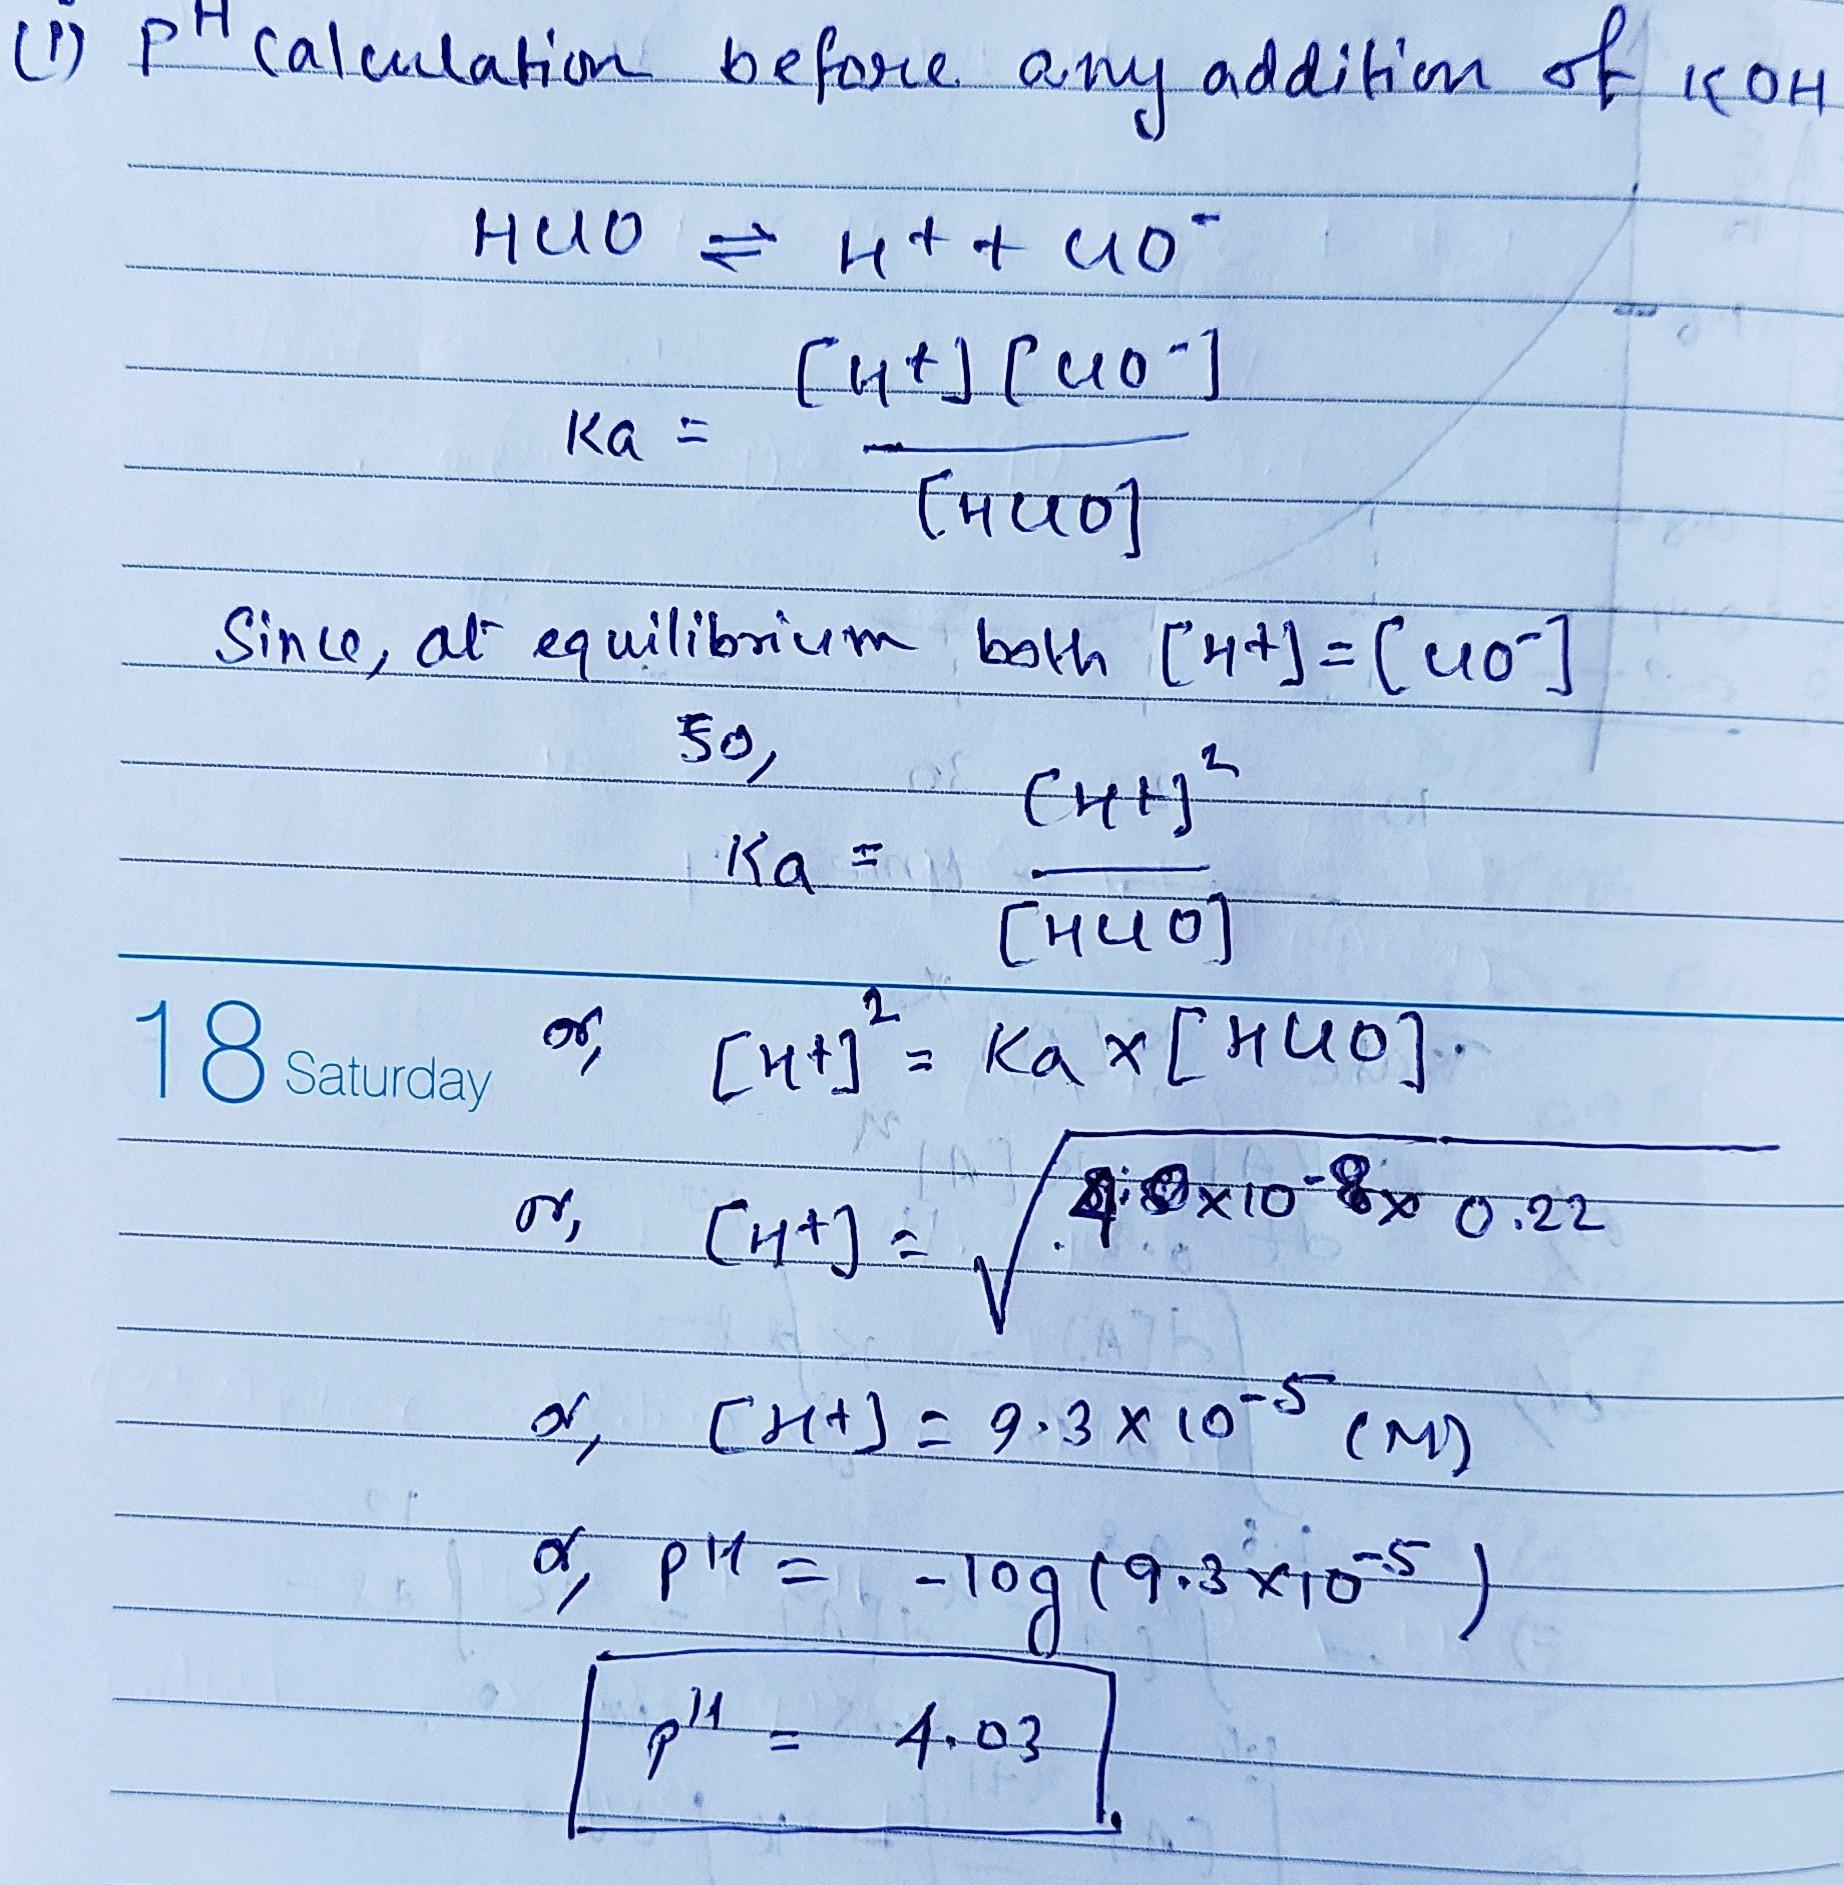 (i) pH calculation before any addition of KOH
HClO ⇌ H+ + ClO-
Ka = [H+] [ClO-] / [HClO]
Since, at equilibrium both [H+] = [ClO-]
So,
Ka = [H+]² / [HClO]
18 Saturday or, [H+]² = Ka x [HClO].
or, [H+] = √4.0x10-8 x 0.22
or, [H+] = 9.3 x 10-5 (M)
or, pH = -log (9.3 x 10-5)
pH = 4.03